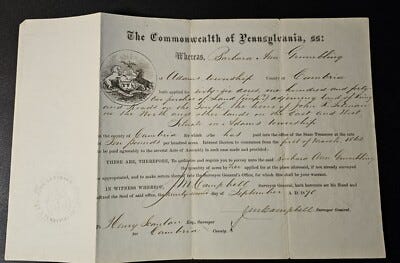 The Commonwealth of Pennsylvania, ss:
Whereas, Barbara Ann Grumbling
of Adams township County of Cambria
hath applied for sixty six acres, one hundred and fifty
perches of land adjoining land of King
and heads on the South, the heirs of John
on the North and other lands on the East and West
Situate in Adams township
in the county of Cambria for which she has paid into the office of the State Treasurer at the rate
of Ten pounds per hundred acres. Interest thereon to commence from the first of March 1865
to be paid agreeably to the several Acts of Assembly in such case made and provided.
THESE ARE, THEREFORE, To authorize and require you to survey unto the said Barbara Ann Grumbling
the quantity of acres applied for at the place aforesaid, if not already surveyed
or appropriated, and to make return thereof into the Surveyor General's Office, for which this shall be your warrant.
IN WITNESS WHEREOF, J M Campbell Surveyor General, hath hereunto set his Hand and
Affixed the Seal of said office, the twenty day of September A. D. 1870
J M Campbell Surveyor General.
To Henry Scanlan Esq., Surveyor
for Cambria County.